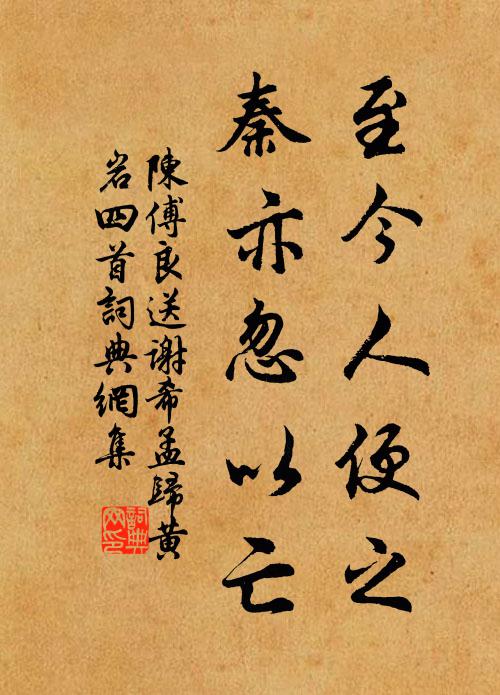 至今人便之
秦亦忽以亡
陳傅良送謝希孟歸黃
岩四首詞典網集
詞典網印